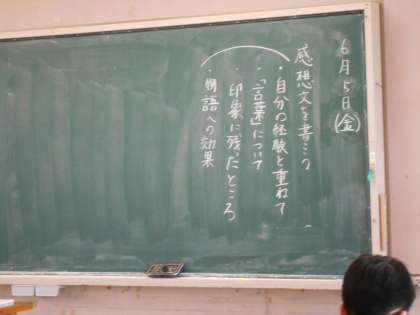 6月5日(金)
感想文を書こう
・自分の経験と重ねて
・「言葉」について
・印象に残ったところ
・物語への効果